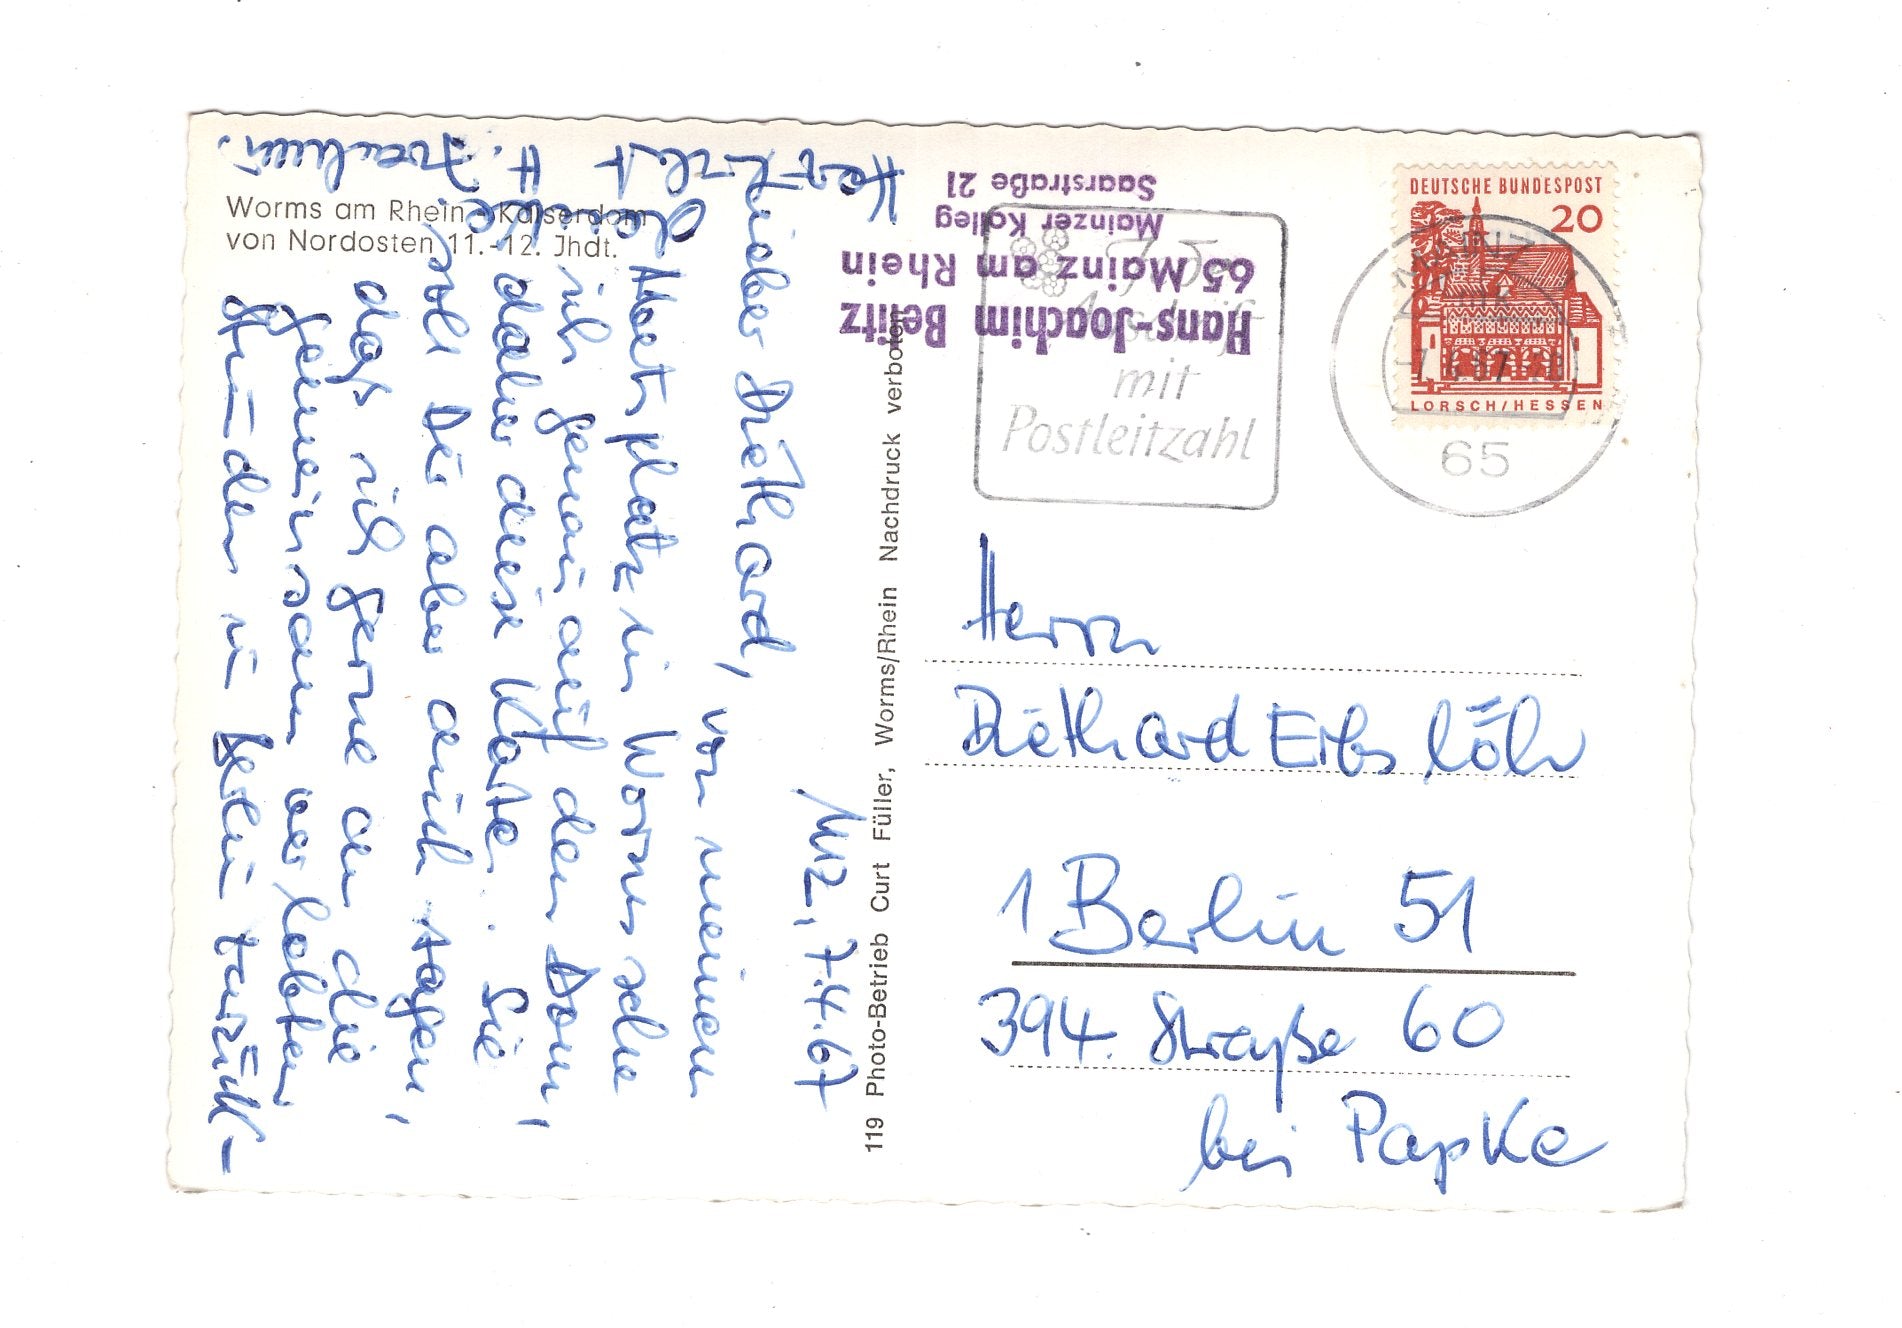 Worms am Rhein - Kaiserdom
von Nordosten 11.-12. Jhdt.
MZ, 7.4.67
Lieber Diethard,
von meinem
Abort platz in Worms sehe
ich genau auf den Dom,
daher diese Karte. Sie
soll Dir aber auch sagen,
daß ich gerne an die
gemeinsam verlebten
Stun-den in Berlin zurück-
denke.
Herzlichst
H. Joachim.
119 Photo-Betrieb Curt Füller, Worms/Rhein Nachdruck verboten
Hans-Joachim Belitz
65 Mainz am Rhein
Mainzer Kolleg
Saarstraße 21
mit
Postleitzahl
DEUTSCHE BUNDESPOST
20
LORSCH/HESSEN
MAINZ
65
Herrn
Diethard Erbslöh
1 Berlin 51
394. Straße 60
bei Papke